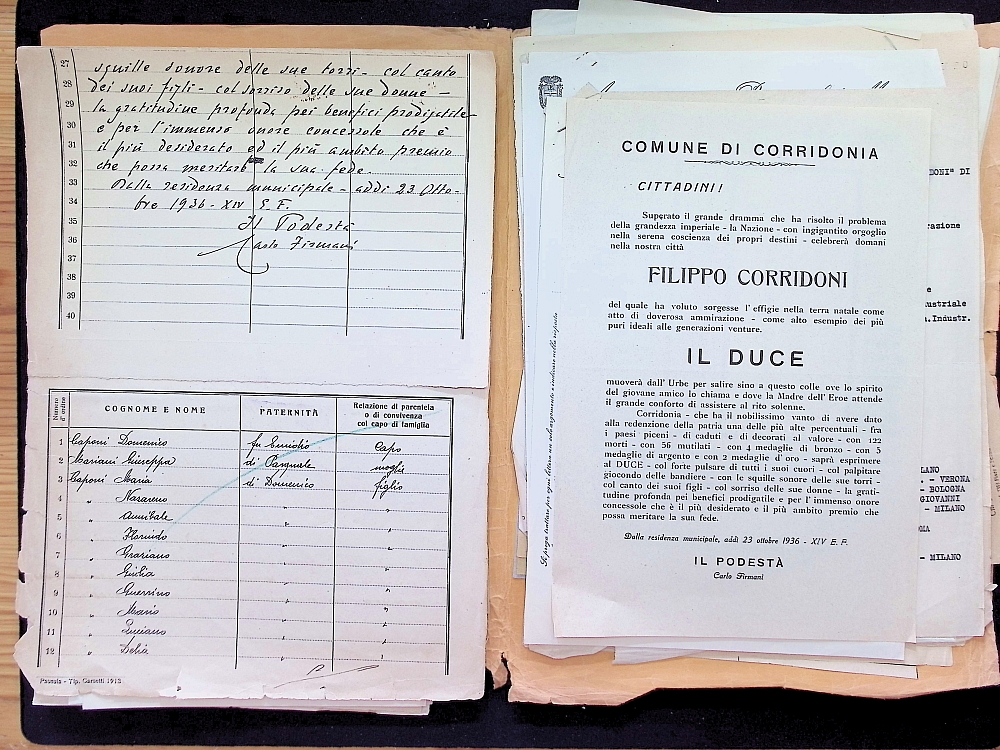 27 squille sonore delle sue torri - col canto
28 dei suoi figli - col sorriso delle sue donne -
29 la gratitudine profonda pei benefici prodigatile
30 e per l'immenso onore concessole che è
31 il più desiderato ed il più ambito premio
32 che possa meritare la sua fede.
33 Dalla residenza municipale - addì 23 Otto-
34 bre 1936 - XIV E. F.
35 Il Podestà
36 Carlo Firmani
37
38
39
40
Numero d'ordine
COGNOME E NOME
PATERNITÀ
Relazione di parentela
o di convivenza
col capo di famiglia
1 Caponi Domenico fu Emidio Capo
2 Mariani Giuseppa di Pasquale moglie
3 Caponi Maria di Domenico figlio
4 " Nazareno " "
5 " Annibale " "
6 " Florindo " "
7 " Graziano " "
8 " Giulia " "
9 " Guerrino " "
10 " Mario " "
11 " Luciano " "
12 " Delia " "
Pausula - Tip. Garzetti 1912
COMUNE DI CORRIDONIA
CITTADINI!
Superato il grande dramma che ha risolto il problema
della grandezza imperiale - la Nazione - con ingigantito orgoglio
nella serena coscienza dei propri destini - celebrerà domani
nella nostra città
FILIPPO CORRIDONI
del quale ha voluto sorgesse l'effigie nella terra natale come
atto di doverosa ammirazione - come alto esempio dei più
puri ideali alle generazioni venture.
IL DUCE
muoverà dall'Urbe per salire sino a questo colle ove lo spirito
del giovane amico lo chiama e dove la Madre dell'Eroe attende
il grande conforto di assistere al rito solenne.
Corridonia - che ha il nobilissimo vanto di avere dato
alla redenzione della patria una delle più alte percentuali - fra
i paesi piceni - di caduti e di decorati al valore - con 122
morti - con 56 mutilati - con 4 medaglie di bronzo - con 5
medaglie di argento e con 2 medaglie d'oro - saprà esprimere
al DUCE - col forte pulsare di tutti i suoi cuori - col palpitare
giocondo delle bandiere - con le squille sonore delle sue torri -
col canto dei suoi figli - col sorriso delle sue donne - la grati-
tudine profonda pei benefici prodigatile e per l'immenso onore
concessole che è il più desiderato e il più ambito premio che
possa meritare la sua fede.
Dalla residenza municipale, addì 23 ottobre 1936 - XIV E. F.
IL PODESTÀ
Carlo Firmani
Si prega trattare per ogni lettera un solo argomento e indicare nella risposta
DONI" DI
razione
ustriale
.Industr.
LANO
. - VERONA
- BOLOGNA
GIOVANNI
- MILANO
- MILANO